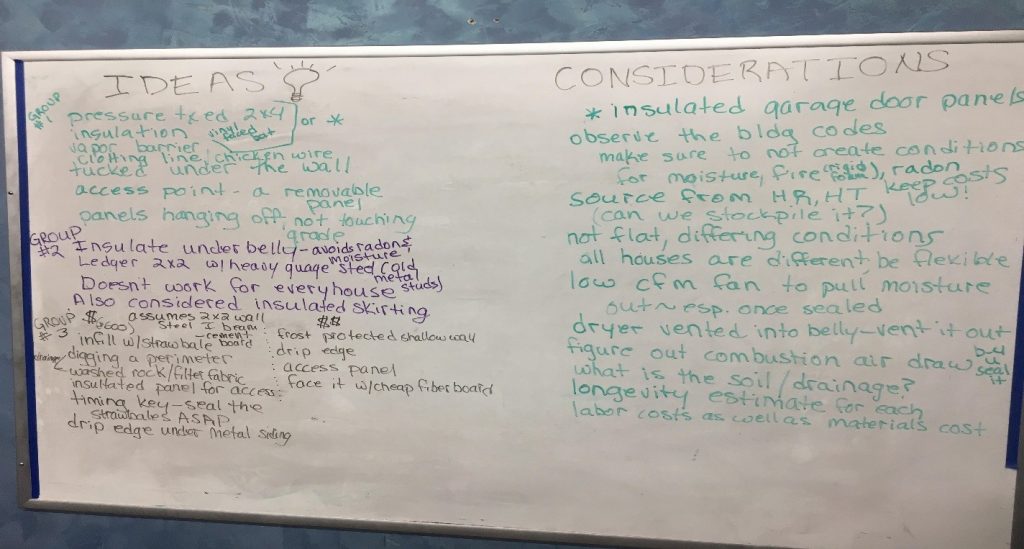 IDEAS
GROUP #1
pressure txed 2x4
insulation vinyl faced bat
or *
vapor barrier
clotting line/chicken wire
tucked under the wall
access point - a removable
panel
panels hanging off, not touching
grade
GROUP #2
Insulate underbelly - avoids radons,
moisture
Ledger 2x2 w/heavy quage sted (cold
metal
studs)
Doesnt work for every house
Also considered insulated skirting
GROUP #3
$ assumes 2x2 wall
$600) steel I beam
infill w/strawbale cement board
digging a perimeter
drainage
washed rock/filter fabric
insultated panel for access:
timing key - seal the
strawbales ASAP
drip edge under metal siding
$$
: frost protected shallow wall
: drip edge
: access panel
: face it w/cheap fiber board
CONSIDERATIONS
* insulated garage door panels
observe the bldg codes
make sure to not create conditions
for moisture, fire (rigid foam), radon
source from HR, HT keep costs low!
(can we stockpile it?)
not flat, differing conditions
all houses are different, be flexible
low cfm fan to pull moisture
out ~ esp. once sealed
dryer vented into belly - vent it out
figure out combustion air draw
seal it
what is the soil/drainage?
longevity estimate for each
labor costs as well as materials cost